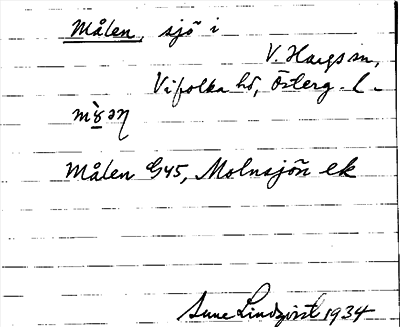 Målen, sjö i
V. Hargs sn,
Vifolka hd, Österg. l.
Målen G45, Molnsjön ek
Sune Lindqvist 1934